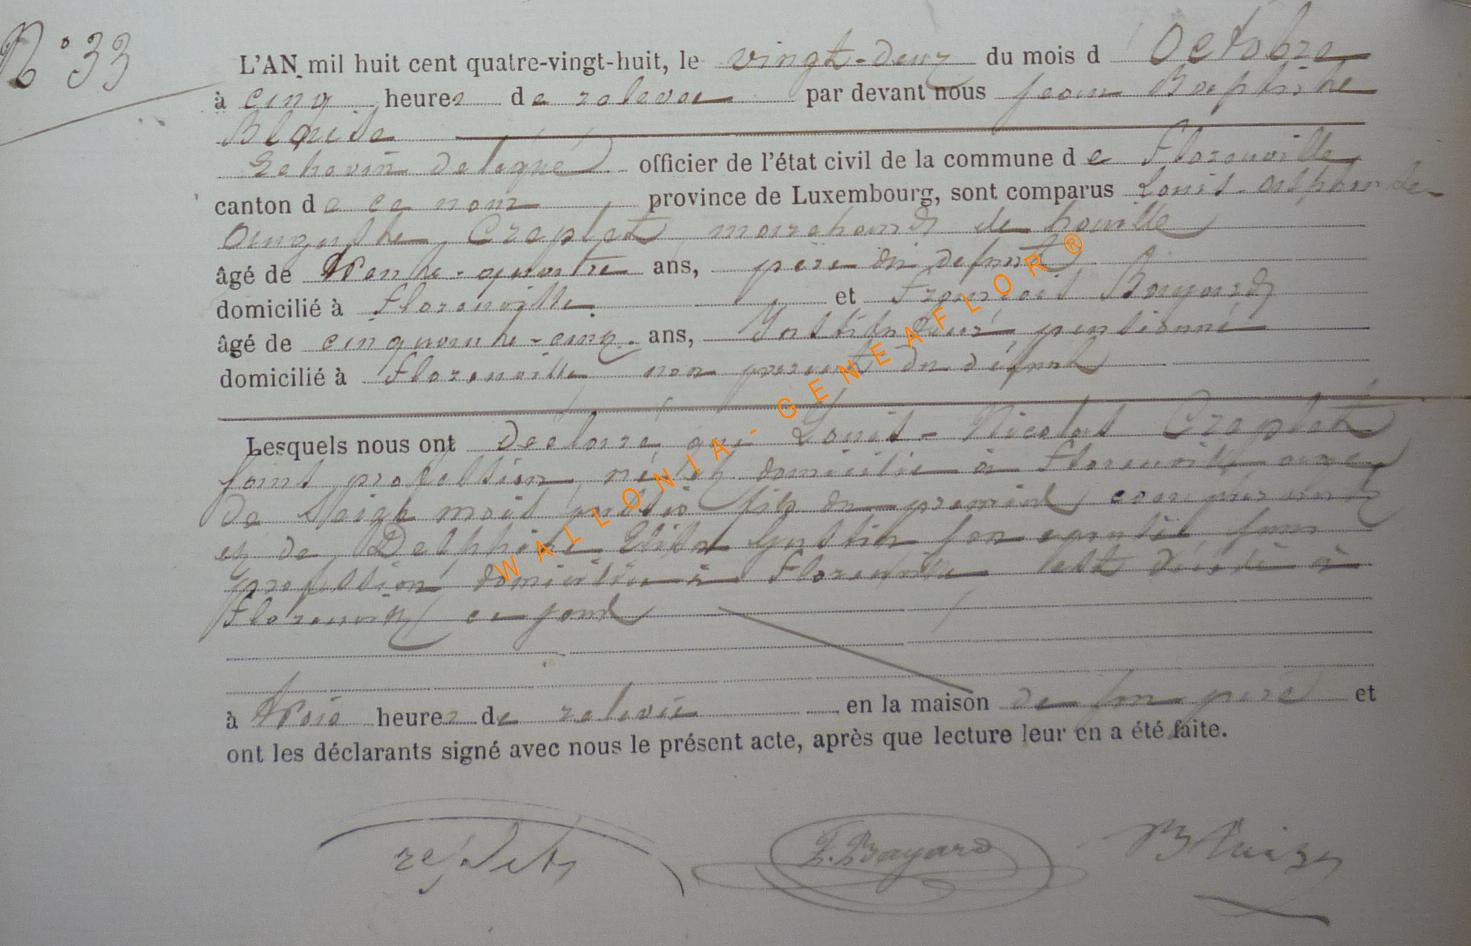 N° 33
L'AN mil huit cent quatre-vingt-huit, le vingt-deux du mois d'Octobre
à cinq heures de relevée par devant nous Jean Baptiste
Blaise
Echevin délégué officier de l'état civil de la commune de Florenville
canton de ce nom province de Luxembourg, sont comparus Louis
Auguste Creplet marchand de houille
âgé de trente-quatre ans, père du défunt
domicilié à Florenville et François Bayard
âgé de cinquante-cinq ans, pensionné
domicilié à Florenville non parent du défunt
Lesquels nous ont déclaré que Louis-Nicolas Creplet
sans profession, né et domicilié à Florenville
de mois fils du premier comparant
et de Delphine
profession domiciliée à Florenville est décédé à
Florenville ce jour
à trois heures de relevée en la maison de son père et
ont les déclarants signé avec nous le présent acte, après que lecture leur en a été faite.
F. Bayard
WALLONIA - GENEAFLOR ®